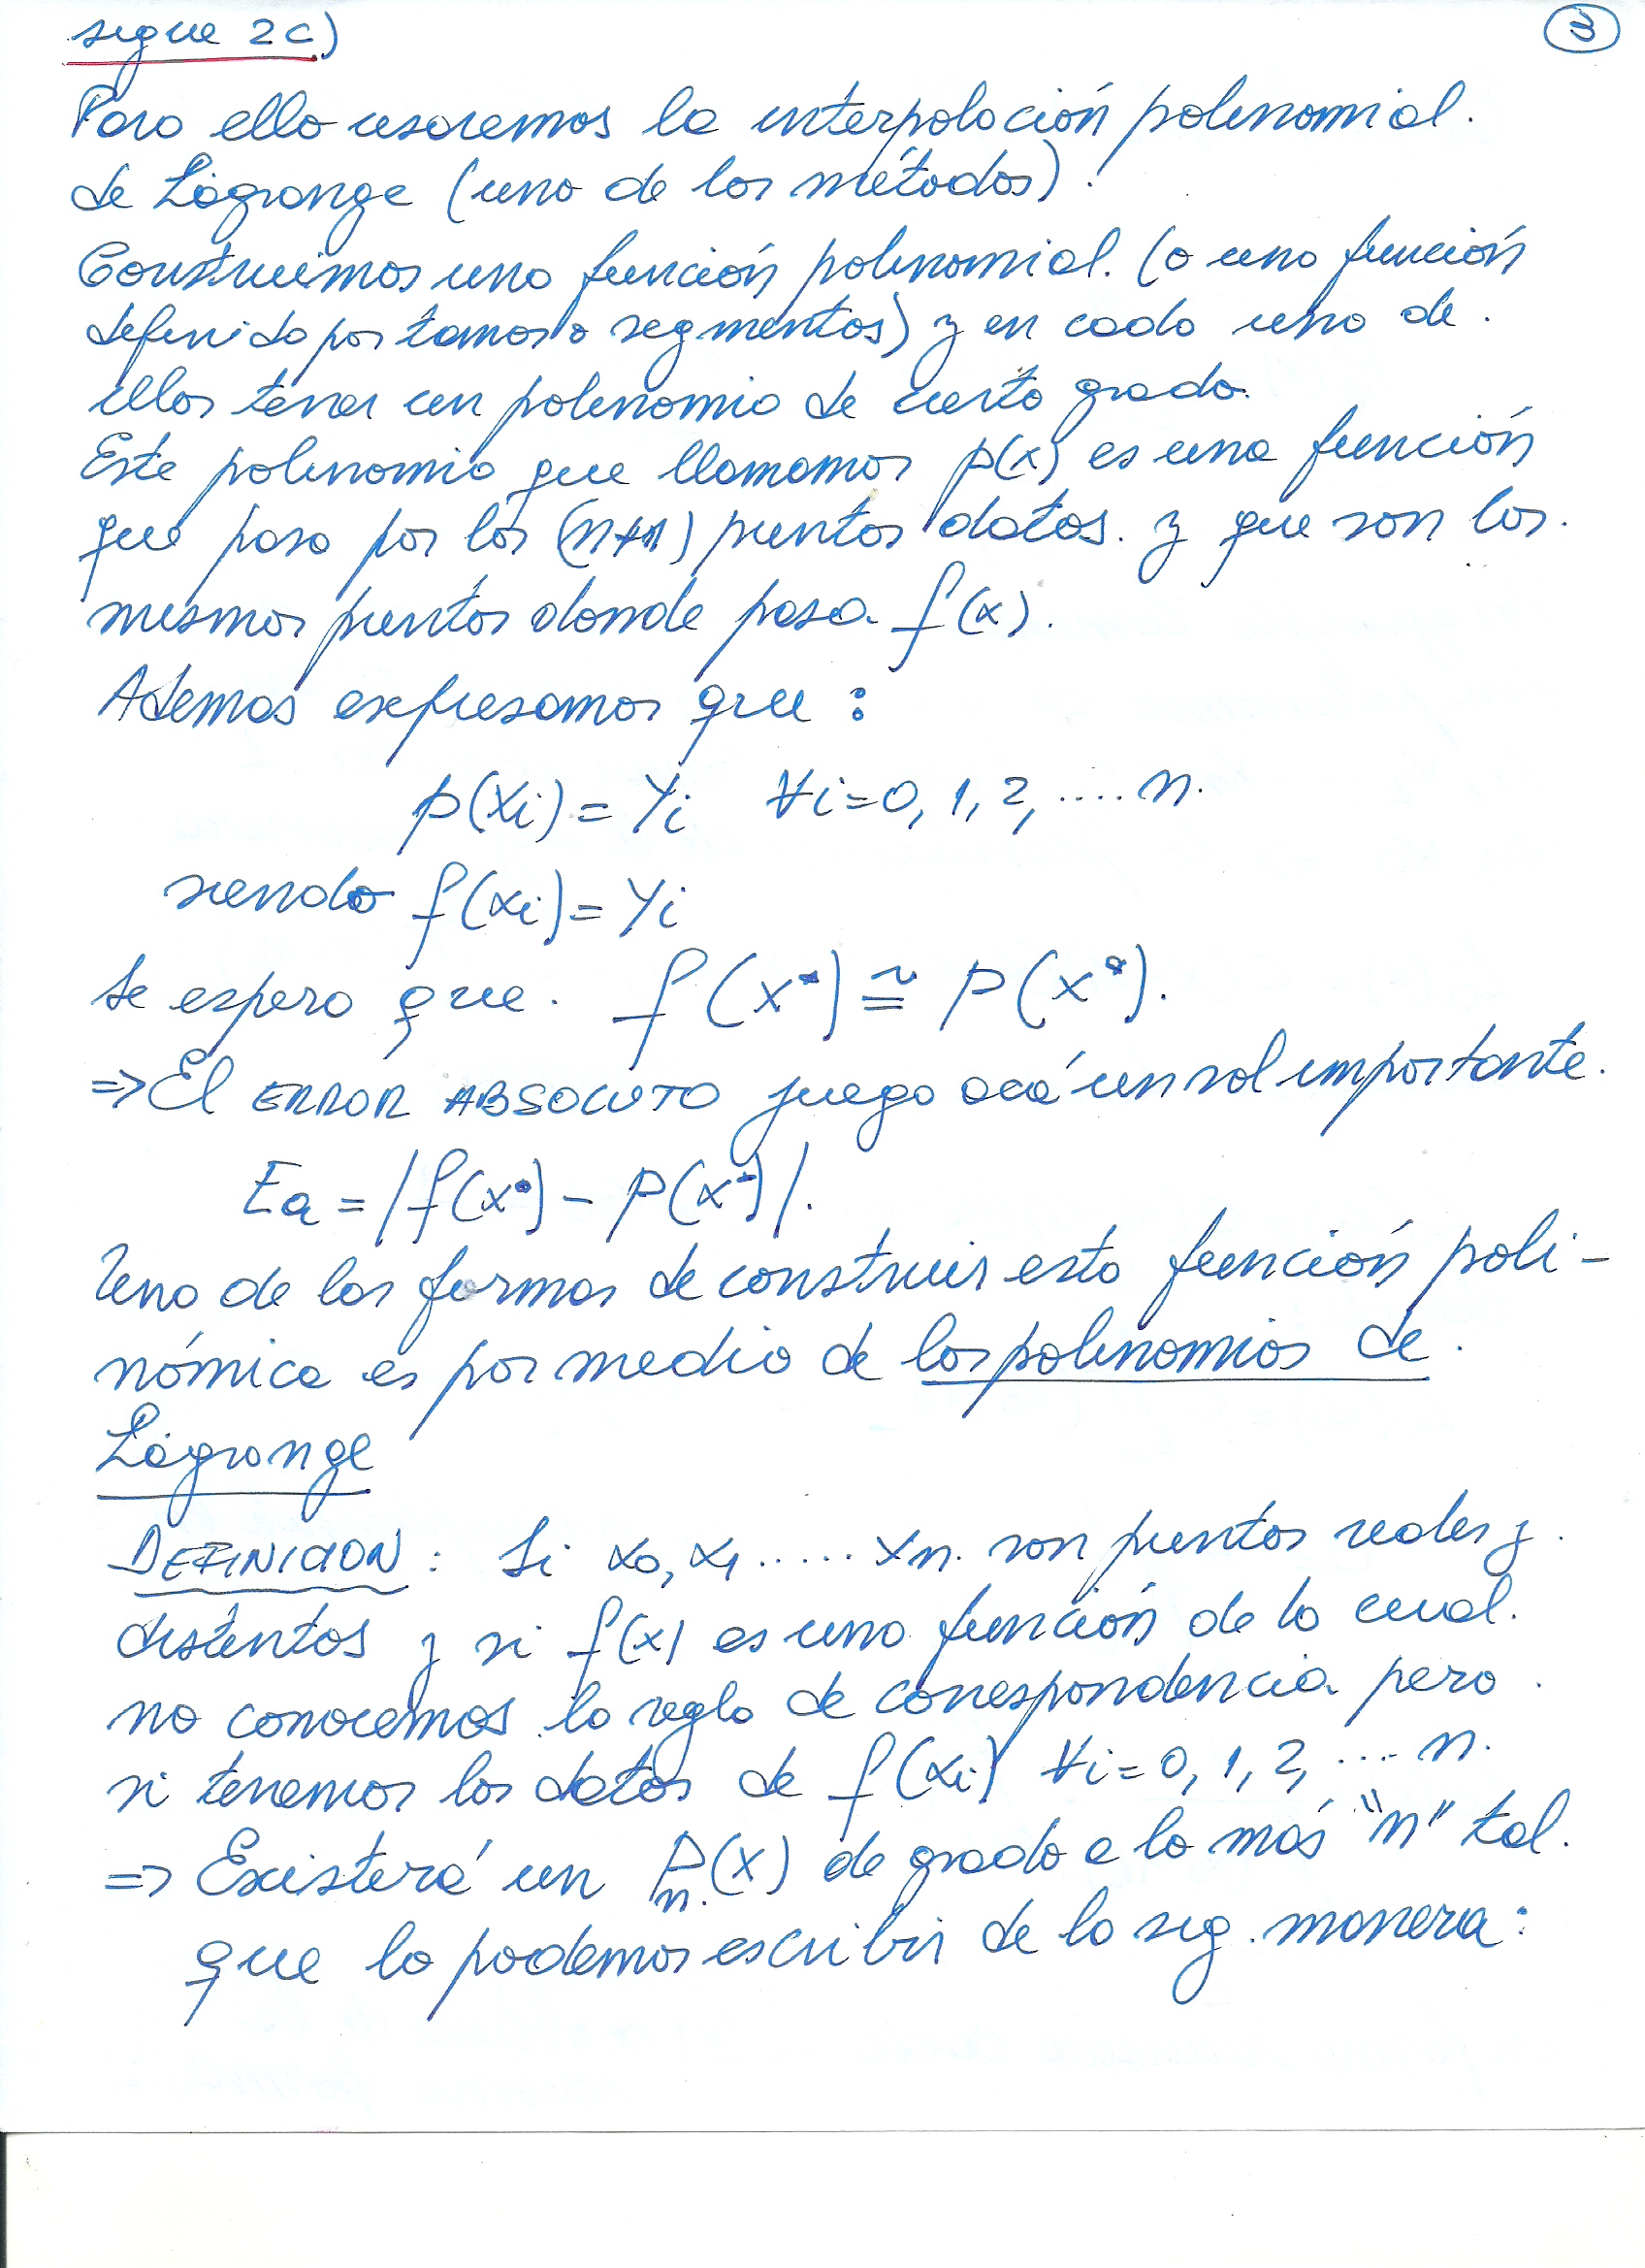 sigue 2c)
3
Para ello usaremos la interpolación polinomial.
de Lagrange (uno de los métodos).
Construimos una función polinomial. (o una función
definida por tamos o segmentos) y en cada uno de.
ellos tener un polinomio de cierto grado.
Este polinomio que llamamos p(x) es una función
que pasa por los (n+1) puntos datos. y que son los.
mismos puntos donde pasa f(x).
Ademas expresamos que :
p(xi) = Yi ∀i=0, 1, 2, .... n.
siendo f(xi) = Yi
Se espera que. f(x*) ≅ P(x*).
=> El ERROR ABSOLUTO juega acá un rol importante.
Ea = |f(x*) - P(x*)|.
Una de las formas de construir esta función poli-
nómica es por medio de los polinomios de.
Lagrange
DEFINICION : Si x0, x1 ..... xn. son puntos reales y.
distintos y si f(x) es una función de la cual.
no conocemos la regla de correspondencia pero.
si tenemos los datos de f(xi) ∀i=0, 1, 2, .... n.
=> Existirá un Pn.(x) de grado a lo más "n" tal.
que lo podemos escribir de la sig. manera: